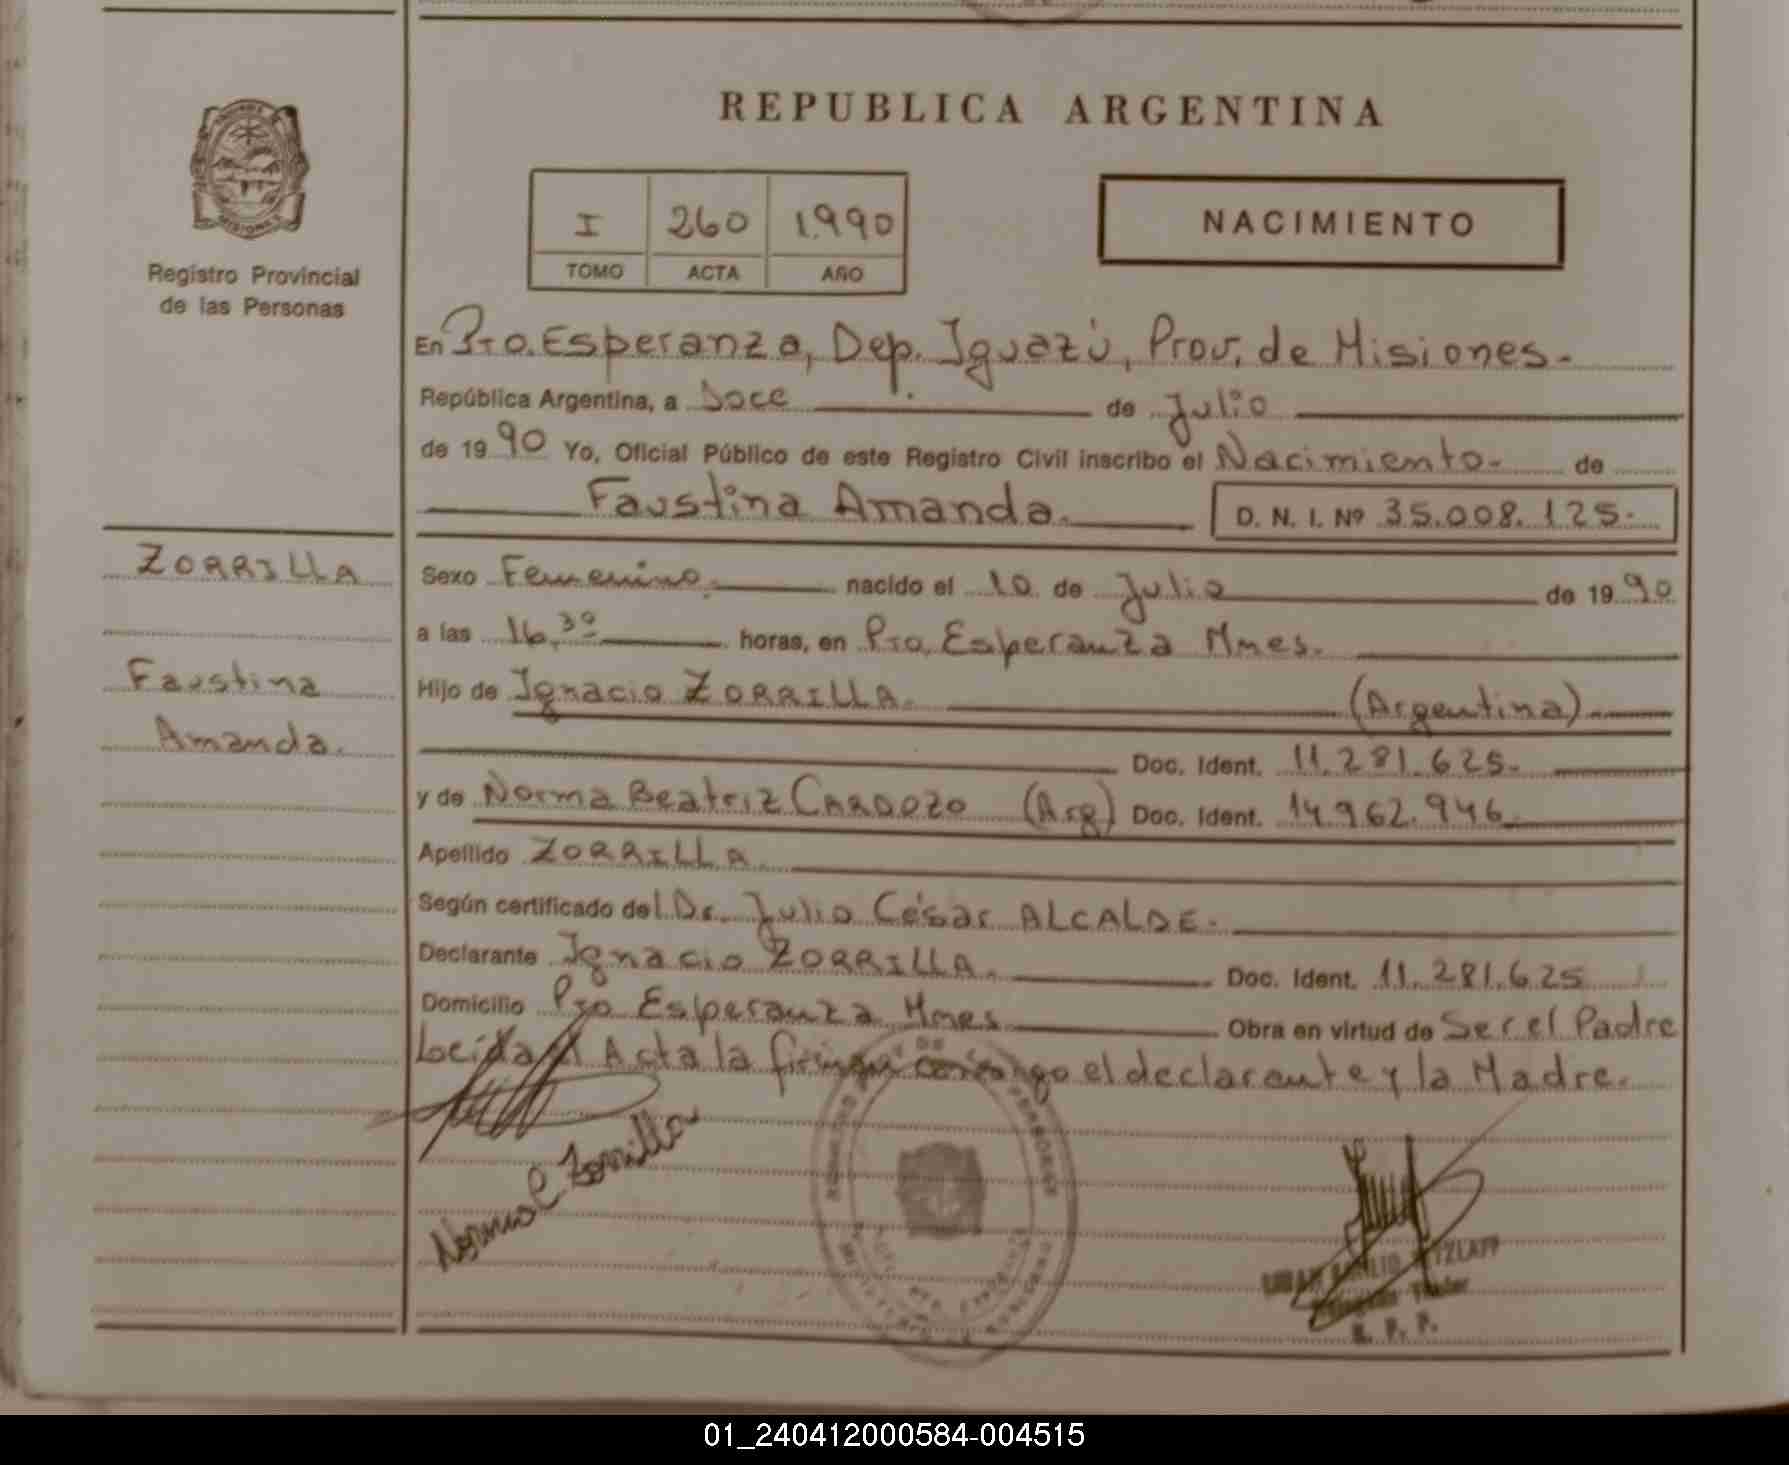 REPUBLICA ARGENTINA
Registro Provincial
de las Personas
MISIONES
I 260 1.990
TOMO ACTA AÑO
NACIMIENTO
En Pto. Esperanza, Dep. Iguazú, Prov. de Misiones.
República Argentina, a Doce de Julio
de 1990 Yo, Oficial Público de este Registro Civil inscribo el Nacimiento. de
Faustina Amanda. D. N. I. Nº 35.008.125.
ZORRILLA
Faustina
Amanda.
Sexo Femenino. nacido el 10 de Julio de 1990
a las 16,30 horas, en Pto. Esperanza Mnes.
Hijo de Ignacio ZORRILLA. (Argentina)
Doc. Ident. 11.281.625.
y de Norma Beatriz CARDOZO (Arg) Doc. Ident. 14.962.946.
Apellido ZORRILLA.
Según certificado del Dr. Julio César ALCALDE.
Declarante Ignacio ZORRILLA. Doc. Ident. 11.281.625
Domicilio Pto Esperanza Mnes Obra en virtud de Ser el Padre
Leida el Acta la firman conmigo el declarante y la Madre.
Norma C Zorrilla
R. P. P.
01_240412000584-004515